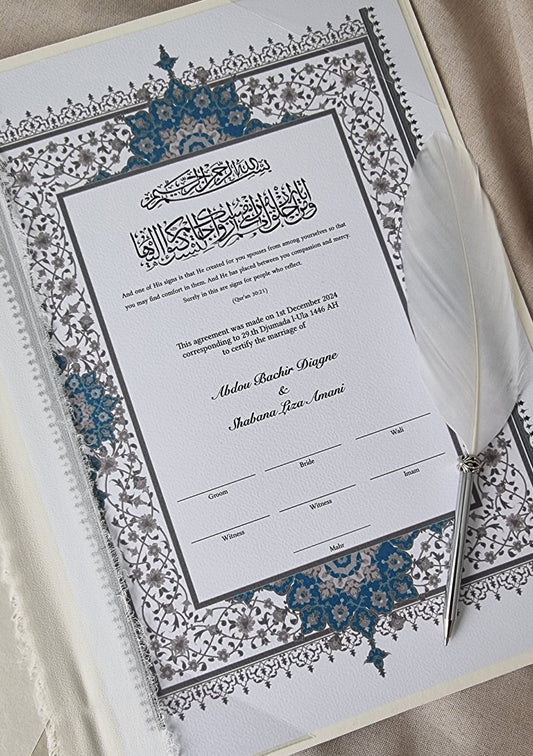 بسم الله الرحمن الرحيم
And one of His signs is that He created for you spouses from among yourselves so that
you may find comfort in them. And He has placed between you compassion and mercy
Surely in this are signs for people who reflect.
(Qur'an 30:21)
This agreement was made on 1st December 2024
corresponding to 29.th Djumada l-Ula 1446 AH
to certify the marriage of
Abdou Bachir Diagne
&
Shabana Liza Amani
Groom Bride Wali
Witness Witness Imam
Mahr